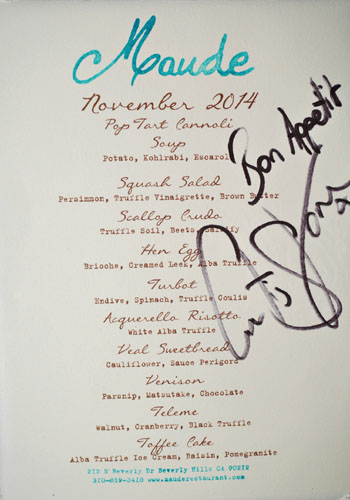 Maude
November 2014
Pop Tart Cannoli
Soup
Potato, Kohlrabi, Escarol
Squash Salad
Persimmon, Truffle Vinaigrette, Brown Butter
Scallop Crudo
Truffle Soil, Beets, Salsify
Hen Egg
Brioche, Creamed Leek, Alba Truffle
Turbot
Endive, Spinach, Truffle Coulis
Acquerello Risotto
White Alba Truffle
Veal Sweetbread
Cauliflower, Sauce Perigord
Venison
Parsnip, Matsutake, Chocolate
Teleme
Walnut, Cranberry, Black Truffle
Toffee Cake
Alba Truffle Ice Cream, Raisin, Pomegranite
212 S Beverly Dr Beverly Hills CA 90212
310-859-3418 www.mauderestaurant.com
Bon Appetit
Curtis Stone